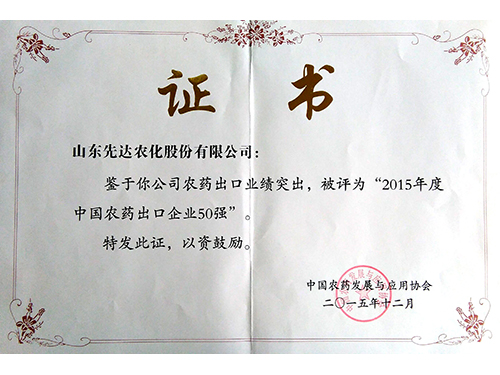 证书
山东先达农化股份有限公司：
鉴于你公司农药出口业绩突出，被评为“2015年度
中国农药出口企业50强”。
特发此证，以资鼓励。
中国农药发展与应用协会
二〇一五年十二月